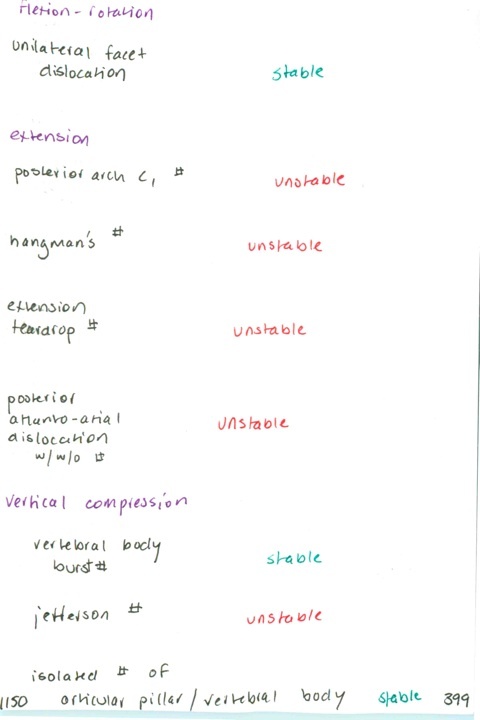 flexion-rotation
unilateral facet
dislocation stable
extension
posterior arch C1 # unstable
hangman's # unstable
extension
teardrop # unstable
posterior
atlanto-axial
dislocation unstable
w/w/o #
vertical compression
vertebral body
burst # stable
jefferson # unstable
isolated # of
1150 articular pillar/vertebral body stable 399